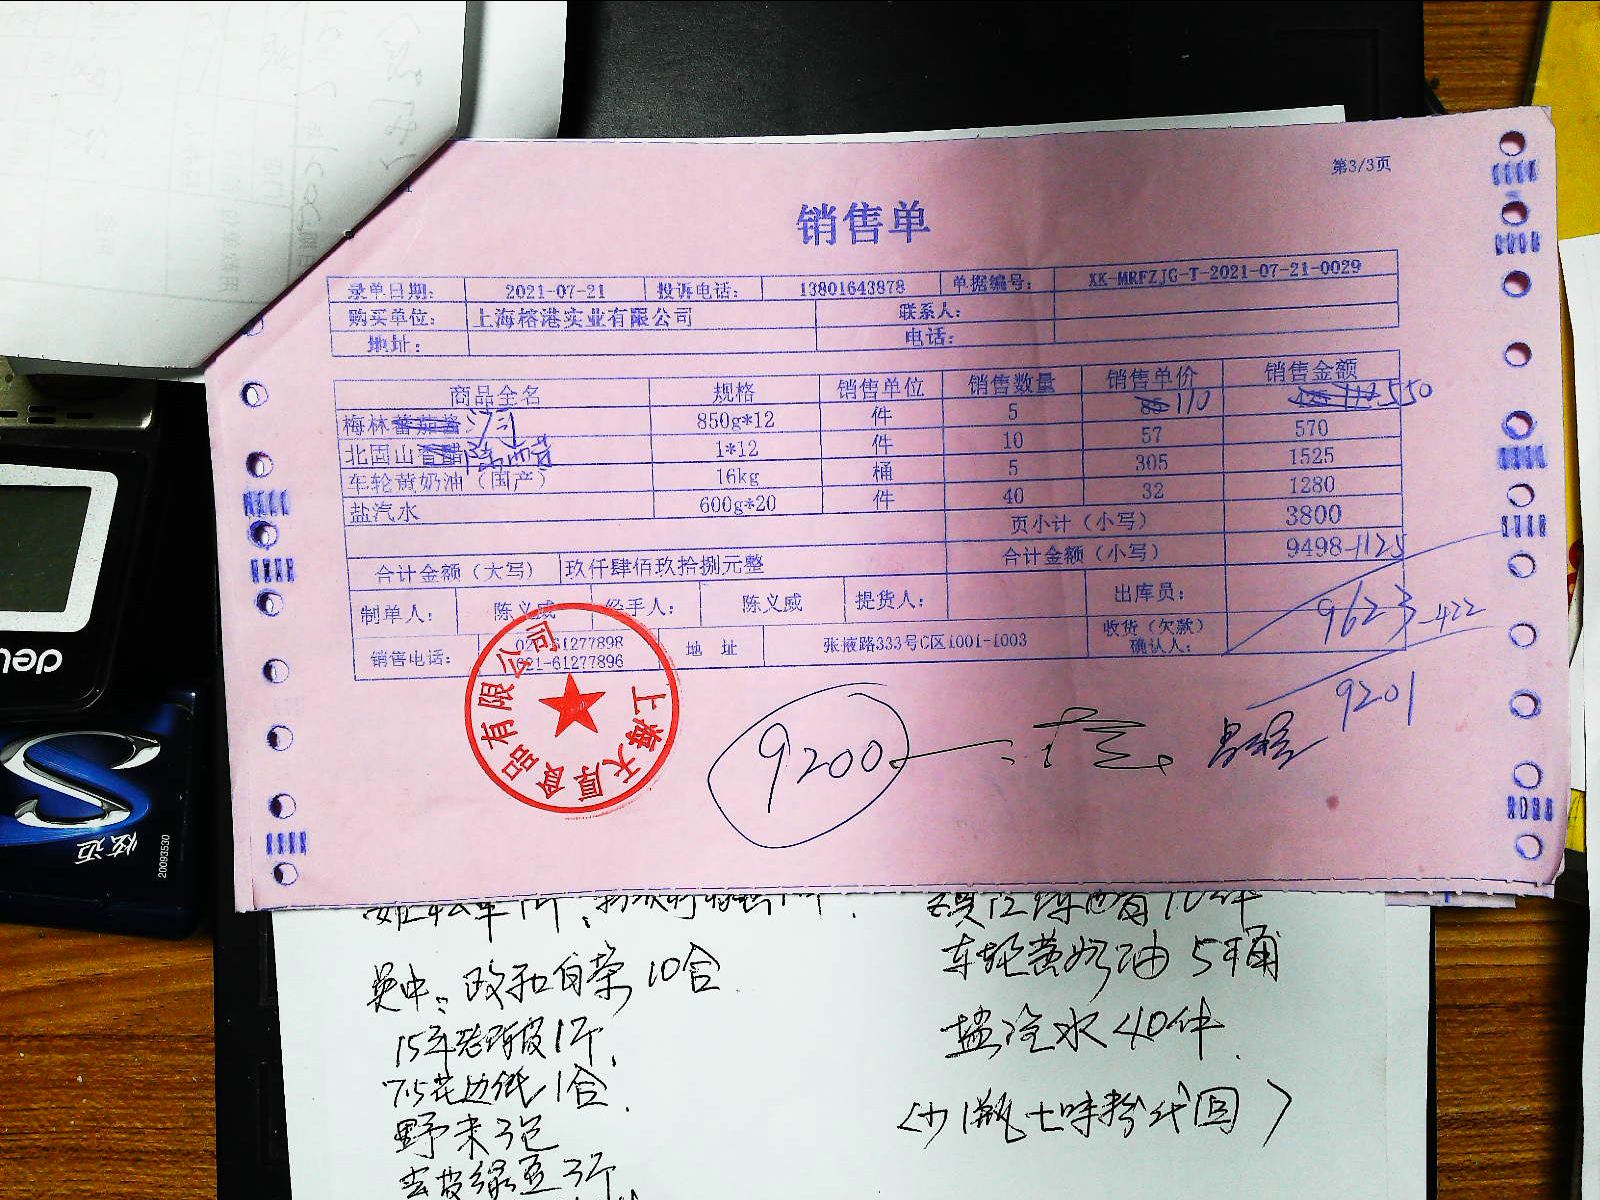 第3/3页
销售单
录单日期: 2021-07-21 投诉电话: 13801643878 单据编号: XK-MRFZJG-T-2021-07-21-0029
购买单位: 上海榕港实业有限公司 联系人:
地址: 电话:
商品全名 规格 销售单位 销售数量 销售单价 销售金额
梅林蕃茄酱 850g*12 件 5 85 110 550
北固山香醋 1*12 件 10 57 570
车轮黄奶油（国产） 16kg 桶 5 305 1525
盐汽水 600g*20 件 40 32 1280
页小计（小写） 3800
合计金额（大写） 玖仟肆佰玖拾捌元整 合计金额（小写） 9498-1125
制单人: 陈义威 经手人: 陈义威 提货人: 出库员:
9623-422
销售电话: 021-61277898 地 址 张掖路333号C区1001-1003 收货（欠款）
021-61277896 确认人:
9201
上海天厚食品有限公司
9200
delı
炫迈
20093530
其中: 政和白茶 10合
15年老陈皮1斤
7.5花边纸1合
野米3包
去皮绿豆3斤
陈西莳10件
车轮黄奶油 5桶
盐汽水40件
(少1瓶七味粉代回)